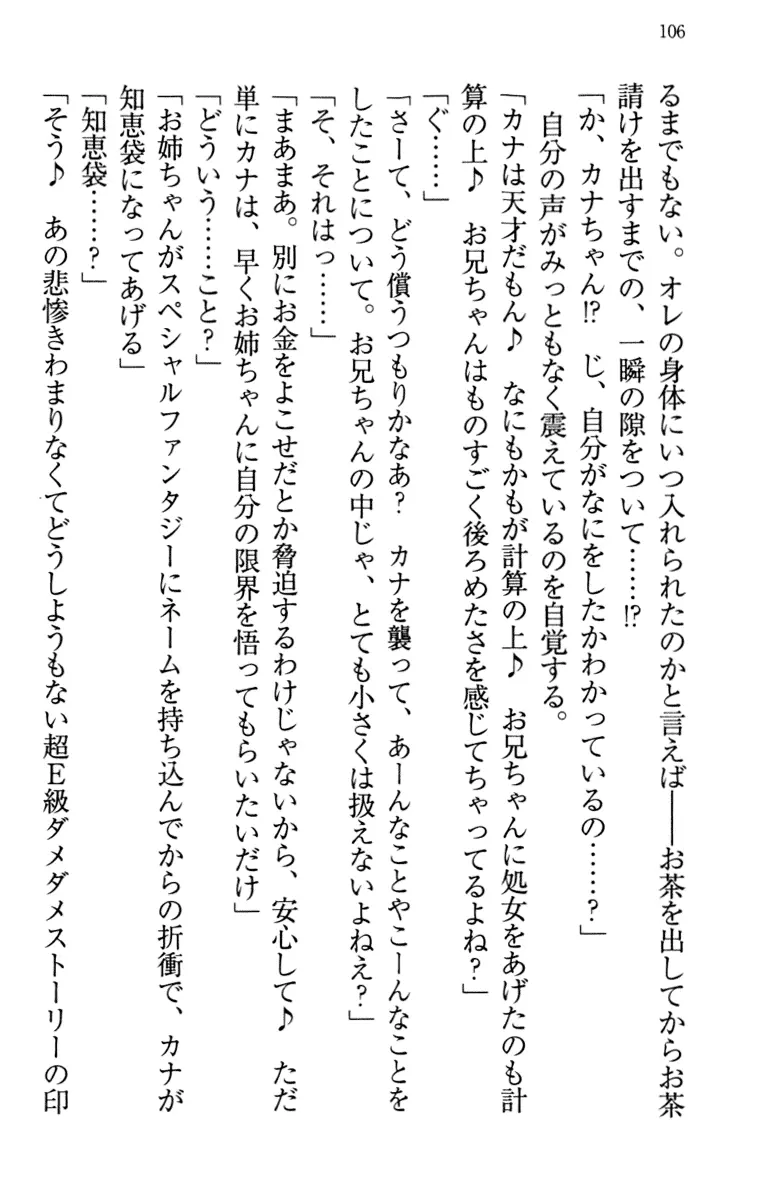 106
るまでもない。オレの身体にいつ入れられたのかと言えば――お茶を出してからお茶
請けを出すまでの、一瞬の隙をついて……!?
「か、カナちゃん!?　じ、自分がなにをしたかわかっているの……？」
自分の声がみっともなく震えているのを自覚する。
「カナは天才だもん♪　なにもかもが計算の上♪　お兄ちゃんに処女をあげたのも計
算の上♪　お兄ちゃんはものすごく後ろめたさを感じてちゃってるよね？」
「ぐ……」
「さーて、どう償うつもりかなあ？　カナを襲って、あーんなことやこーんなことを
したことについて。お兄ちゃんの中じゃ、とても小さくは扱えないよねえ？」
「そ、それはっ……」
「まあまあ。別にお金をよこせだとか脅迫するわけじゃないから、安心して♪　ただ
単にカナは、早くお姉ちゃんに自分の限界を悟ってもらいたいだけ」
「どういう……こと？」
「お姉ちゃんがスペシャルファンタジーにネームを持ち込んでからの折衝で、カナが
知恵袋になってあげる」
「知恵袋……？」
「そう♪　あの悲惨きわまりなくてどうしようもない超Ｅ級ダメダメストーリーの印